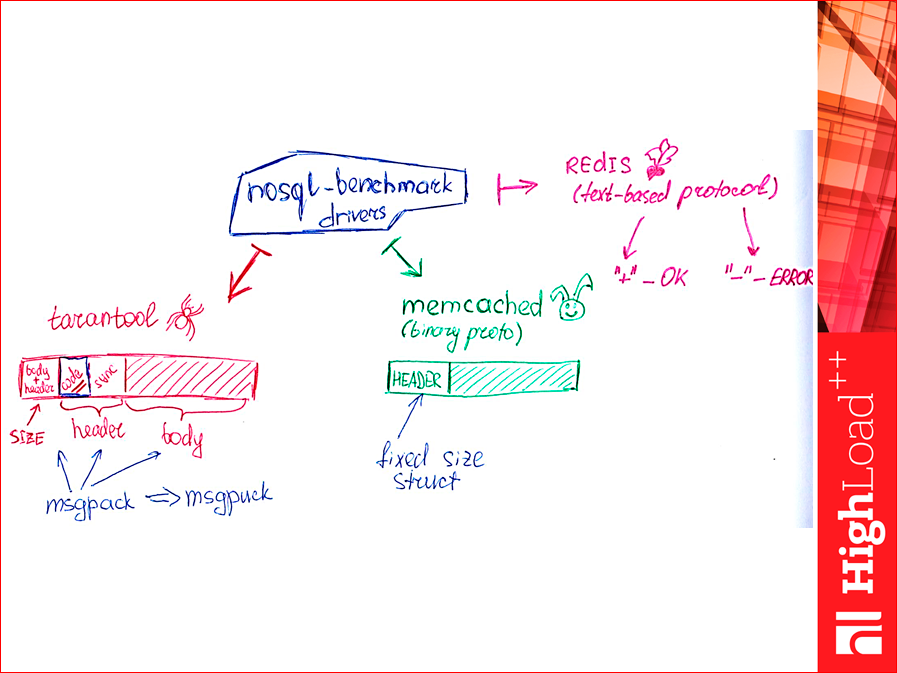 nosql-benchmark
drivers
REDIS
(text-based protocol)
"+" - OK
"-" - ERROR
tarantool
body
+
header
code
sync
SIZE
header
body
msgpack => msgpuck
memcached
(binary proto)
HEADER
fixed size
struct
HighLoad++